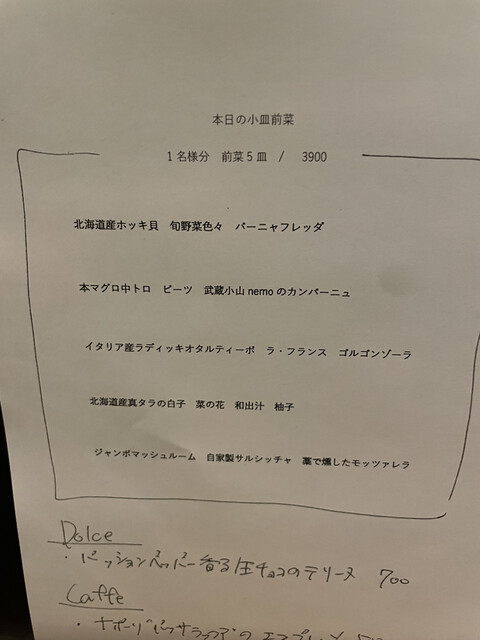 本日の小皿前菜
1名様分 前菜5皿 / 3900
北海道産ホッキ貝 旬野菜色々 バーニャフレッダ
本マグロ中トロ ビーツ 武蔵小山nemoのカンパーニュ
イタリア産ラディッキオタルティーボ ラ・フランス ゴルゴンゾーラ
北海道産真タラの白子 菜の花 和出汁 柚子
ジャンボマッシュルーム 自家製サルシッチャ 藁で燻したモッツァレラ
Dolce
・パッションペッパー香る生チョコのテリーヌ 700
Caffe